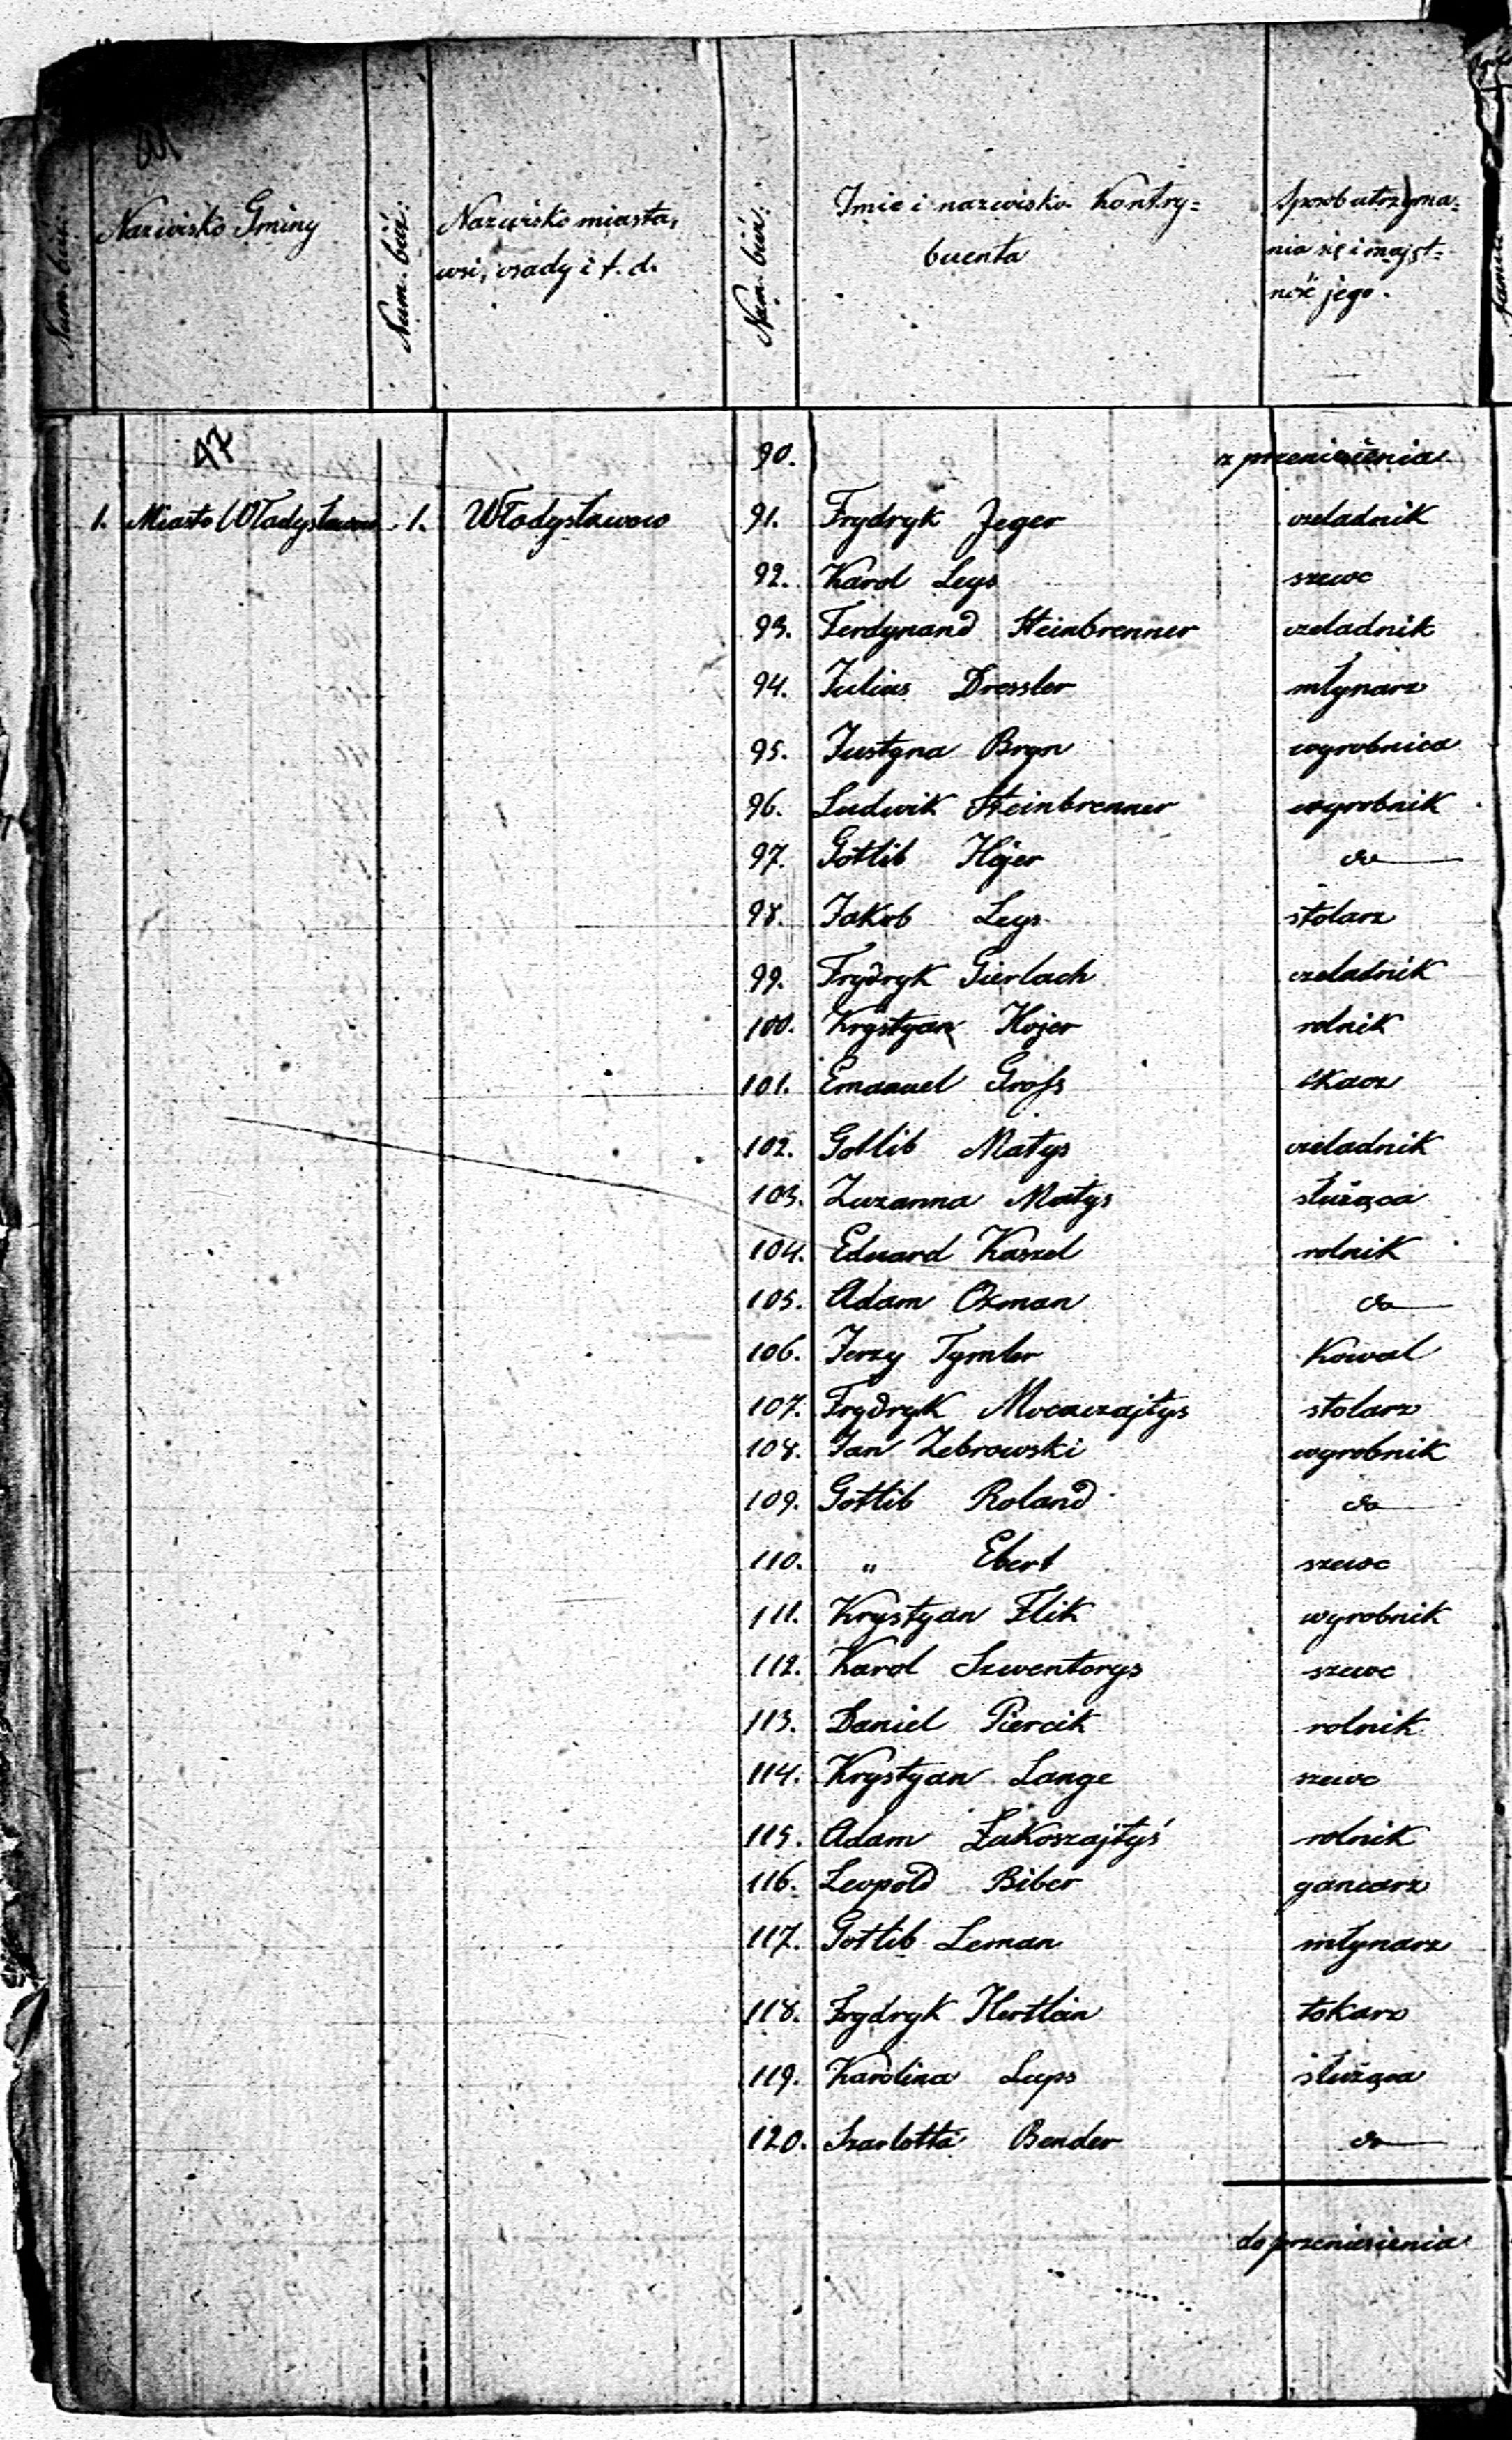 Num. bież. Nazwisko Gminy Num. bież. Nazwisko miasta, wsi, osady i t. d. Num. bież. Imie i nazwisko Kontry=buenta Sposób utrzyma=nia się i majęt=ność jego.
47
90. z przeniesienia
1. Miasto Władysławow 1. Władysławowo 91. Frydryk Jeger czeladnik
92. Karol Leys szewc
93. Ferdynand Steinbrenner czeladnik
94. Julius Dressler młynarz
95. Justyna Bryn wyrobnica
96. Ludwik Steinbrenner wyrobnik
97. Gotlib Hojer do
98. Jakob Leys stolarz
99. Frydryk Gierlach czeladnik
100. Krystyan Hojer rolnik
101. Emanuel Gross tkacz
102. Gotlib Matys czeladnik
103. Zuzanna Matys służąca
104. Edward Kaszel rolnik
105. Adam Ozman do
106. Jerzy Tymler Kowal
107. Frydryk Mocaczajtys stolarz
108. Jan Zebrowski wyrobnik
109. Gotlib Roland do
110. " Ebert szewc
111. Krystyan Flik wyrobnik
112. Karol Szwentorys szewc
113. Daniel Piercik rolnik
114. Krystyan Lange szewc
115. Adam Łukoszajtys rolnik
116. Leopold Biber gancarz
117. Gotlib Leman młynarz
118. Frydryk Hertlein tokarz
119. Karolina Lups służąca
120. Szarlotta Bender do
do przeniesienia